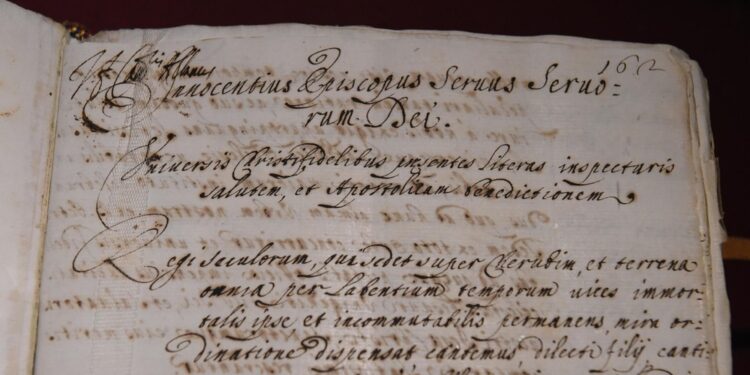 Innocentius Episcopus Seruus Seruo-
162
rum Dei.
Universis Christifidelibus presentes literas inspecturis
salutem, et Apostolicam benedictionem
Regi seculorum, qui sedet super Cherubim, et terrena
omnia per labentium temporum vices immor-
talis ipse, et incommutabilis permanens, mira or-
dinatione dispensat cantemus, dilecti filij, canti-